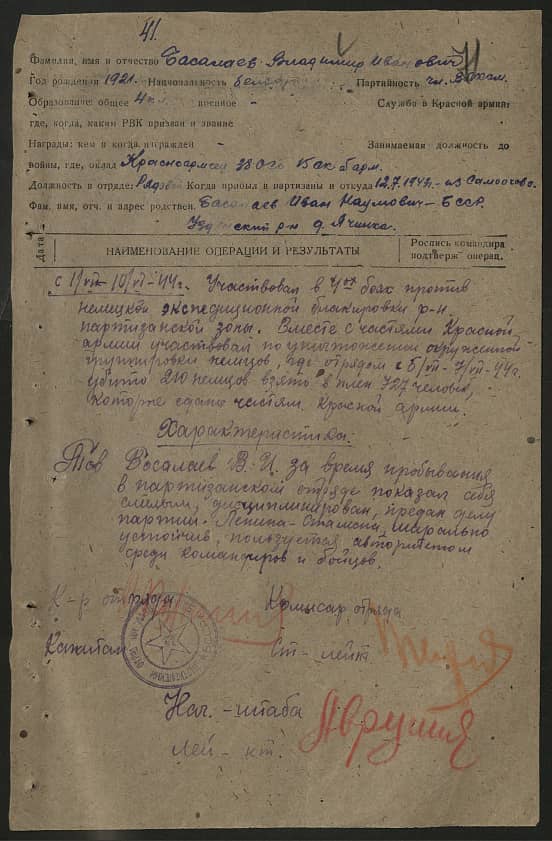 41.
Фамилия, имя и отчество Басалаев Владимир Иванович
Год рождения 1921. Национальность Партийность чл.
Образование общее 4 кл. военное Служба в Красной армии:
где, когда, каким РВК призван и звание
Награды: кем и когда награжден Занимаемая должность до
войны, где, оклад Красноармеец
Должность в отряде: Рядовой Когда прибыл в партизаны и откуда 12.7.1943г.
Фам. имя, отч. и адрес родствен. Басалаев Иван Наумович – БССР.
р-н д. Ячинка.
Дата
НАИМЕНОВАНИЕ ОПЕРАЦИИ И РЕЗУЛЬТАТЫ
Роспись командира подтверж. операц.
Участвовал в 4ех боях против
немецкой экспедиционной блакировки р-н
партизанской зоны. Вместе с частями Красной
армии участвовал по уничтожении окруженой
группировки немцов, где отрядом с 5/VII - 7/VII-44г.
убито 210 немцов взято в плен 727 человек,
которые сдано частям Красной армии.
Характеристика.
Тов Басалаев В. И. за время пробывания
в партизанском отряде показал себя
смелым, дисциплинирован, предан делу
партии Ленина-Сталина, морально
устойчив, пользуется авторитетом
среди командиров и бойцов.
К-р отряда Комисар отряда
Капитан Ст-лейт
Нач. -штаба
Лей-кт.